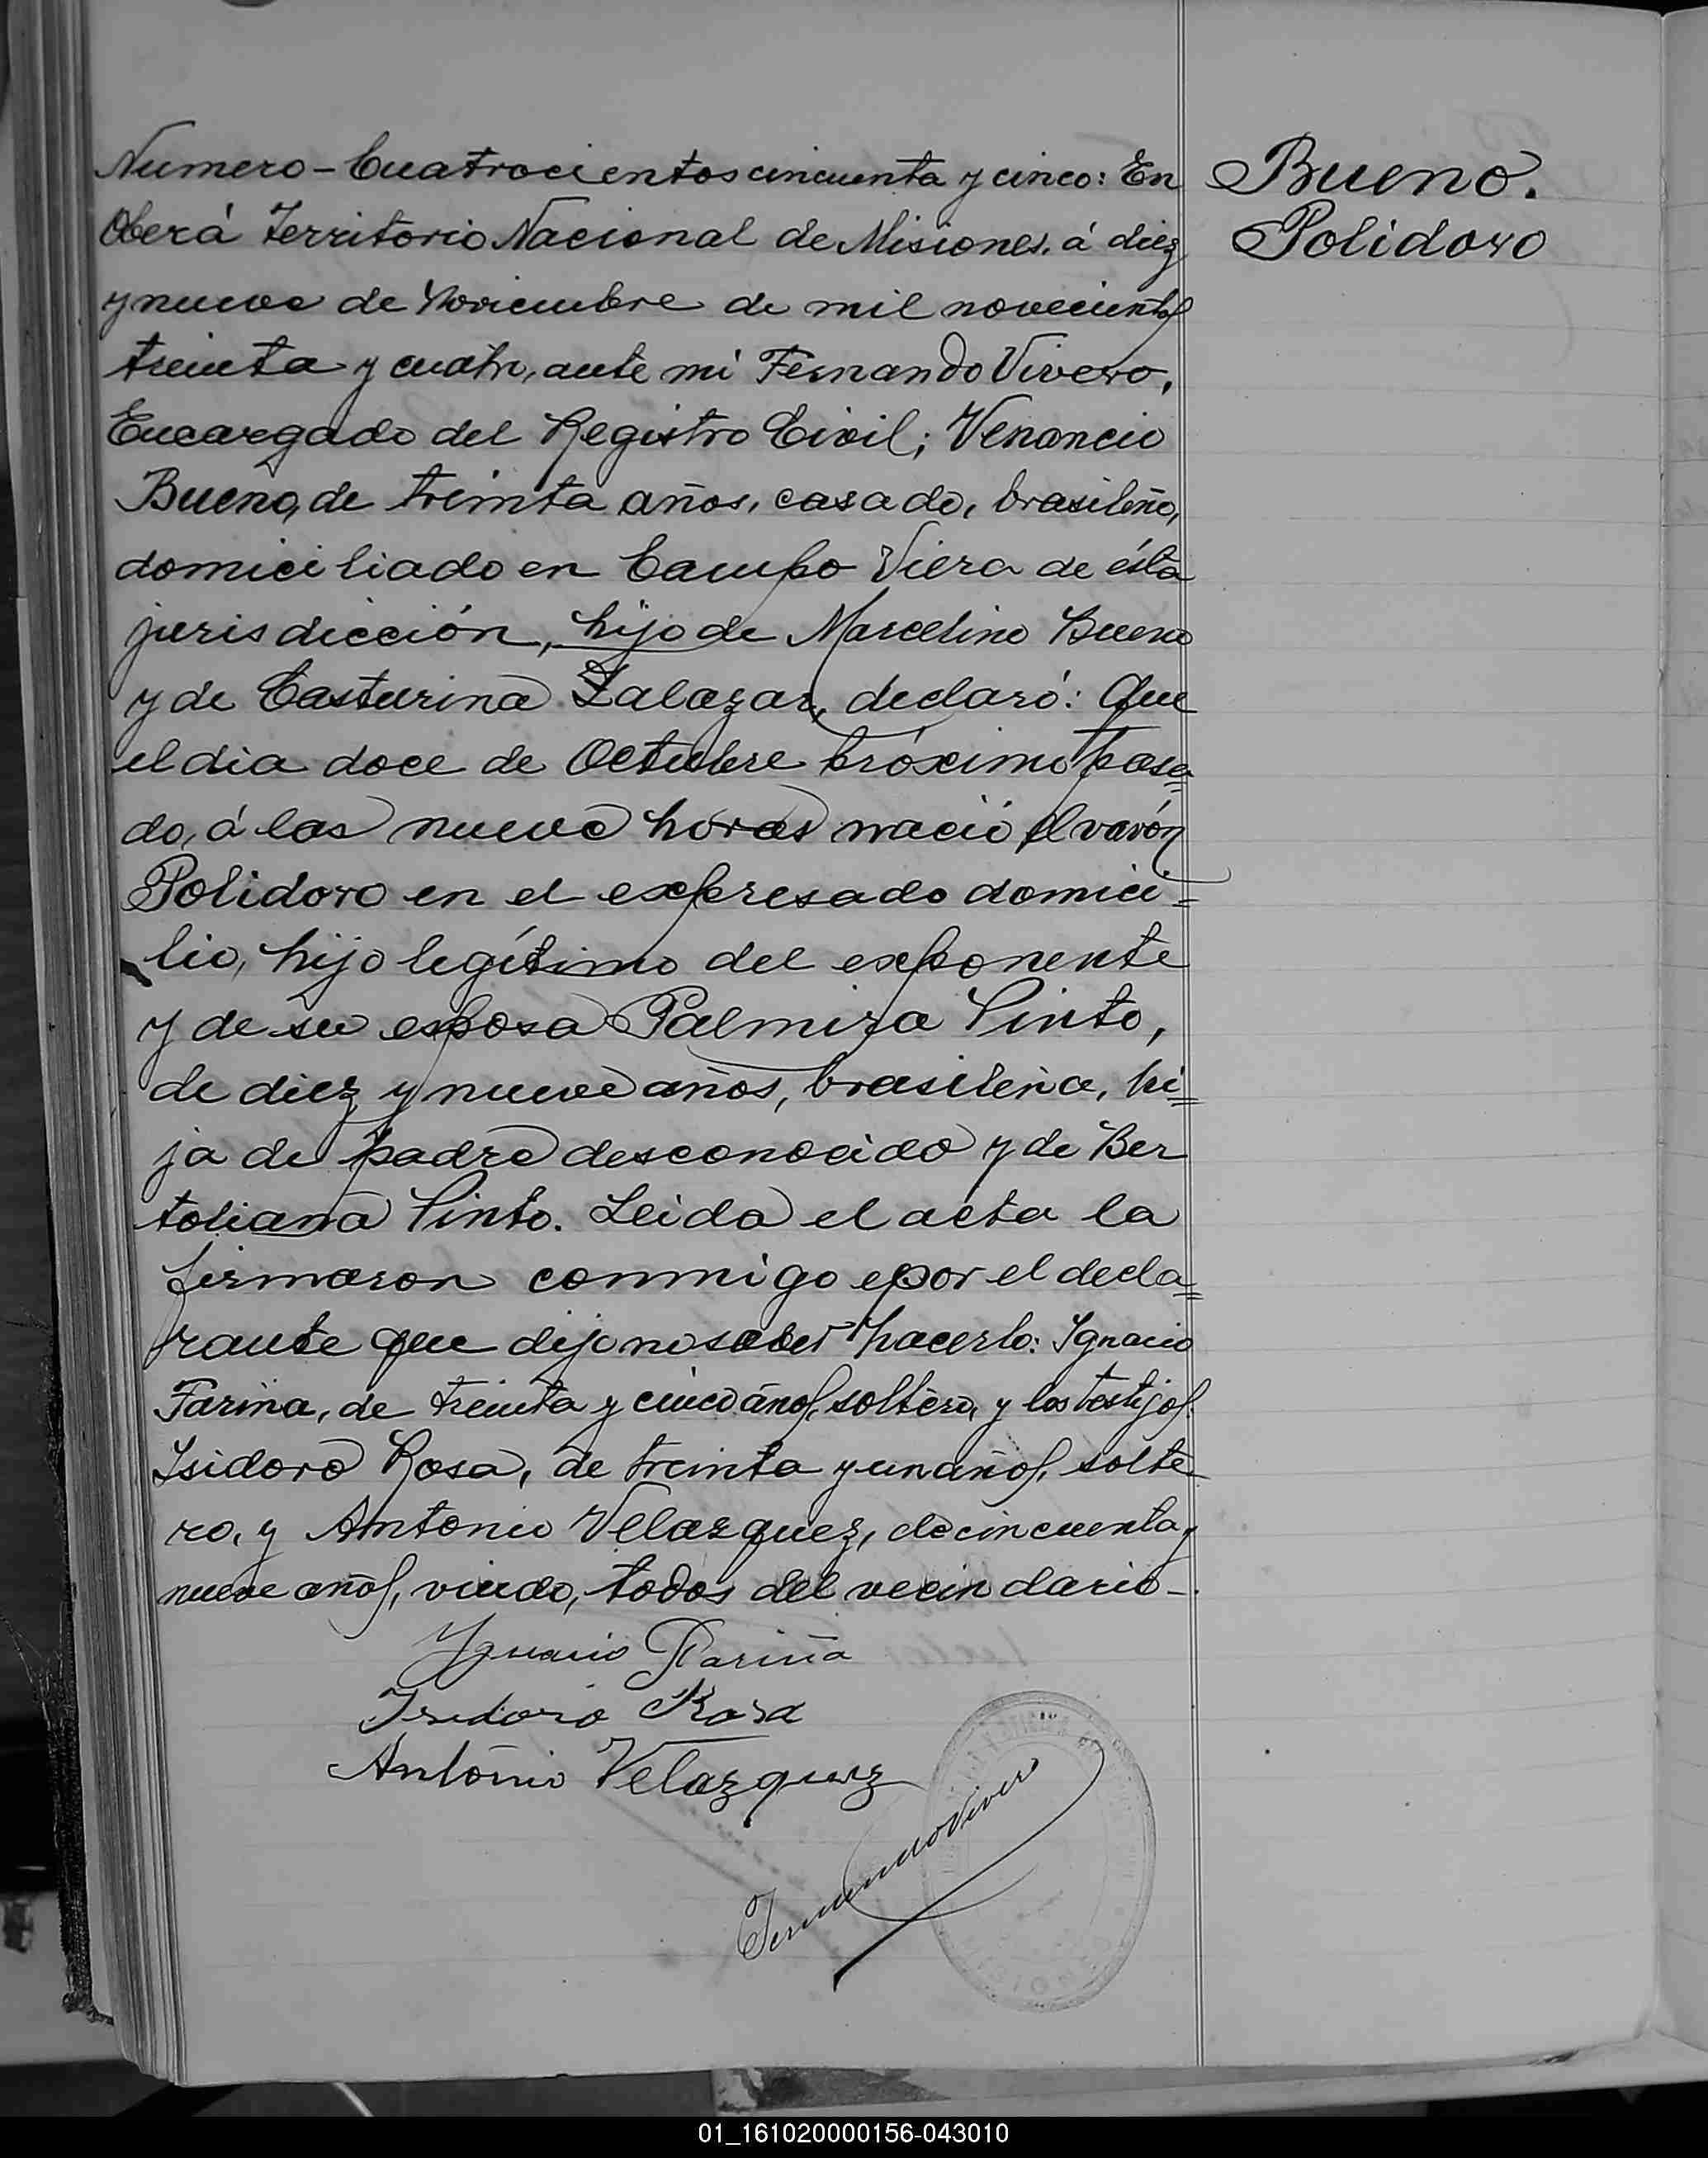 Numero-Cuatrocientos cincuenta y cinco: En
Oberá Territorio Nacional de Misiones, á diez
y nueve de Noviembre de mil novecientos
treinta y cuatro, ante mi Fernando Vivero,
Encargado del Registro Civil; Venancio
Bueno, de treinta años, casado, brasileño,
domiciliado en Campo Viera de ésta
jurisdicción, hijo de Marcelino Bueno
y de Casturina Zalazar, declaró: Que
el dia doce de Octubre próximo pasa=
do, á las nueve horas nació el varón
Polidoro en el expresado domici=
lio, hijo legítimo del exponente
y de su esposa Palmira Pinto,
de diez y nueve años, brasileña, hi=
ja de padre desconocido y de Ber
toliana Pinto. Leida el acta la
firmaron conmigo por el decla=
rante que dijo no saber hacerlo: Ignacio
Fariña, de treinta y cinco años, soltero, y los testigos:
Isidoro Rosa, de treinta y un años, solte
ro, y Antonio Velazquez, de cincuenta y
nueve años, viudo, todos del vecindario-.
Ygnacio Fariña
Isidoro Rosa
Antonio Velazquez
Fernando Vivero
Bueno.
Polidoro
01_161020000156-043010